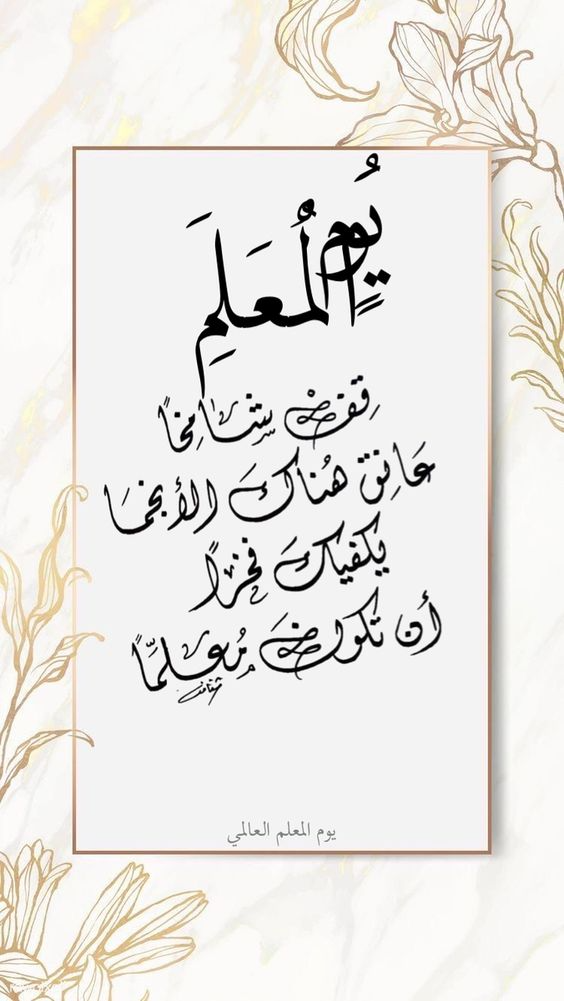 يُومِ
المُعَلِمَ
قِف شامِخاً
عَانِق هُناكَ الأنجُمَا
يكفيكَ فخراً
أن تكونَ مُعلِّمًا
يوم المعلم العالمي